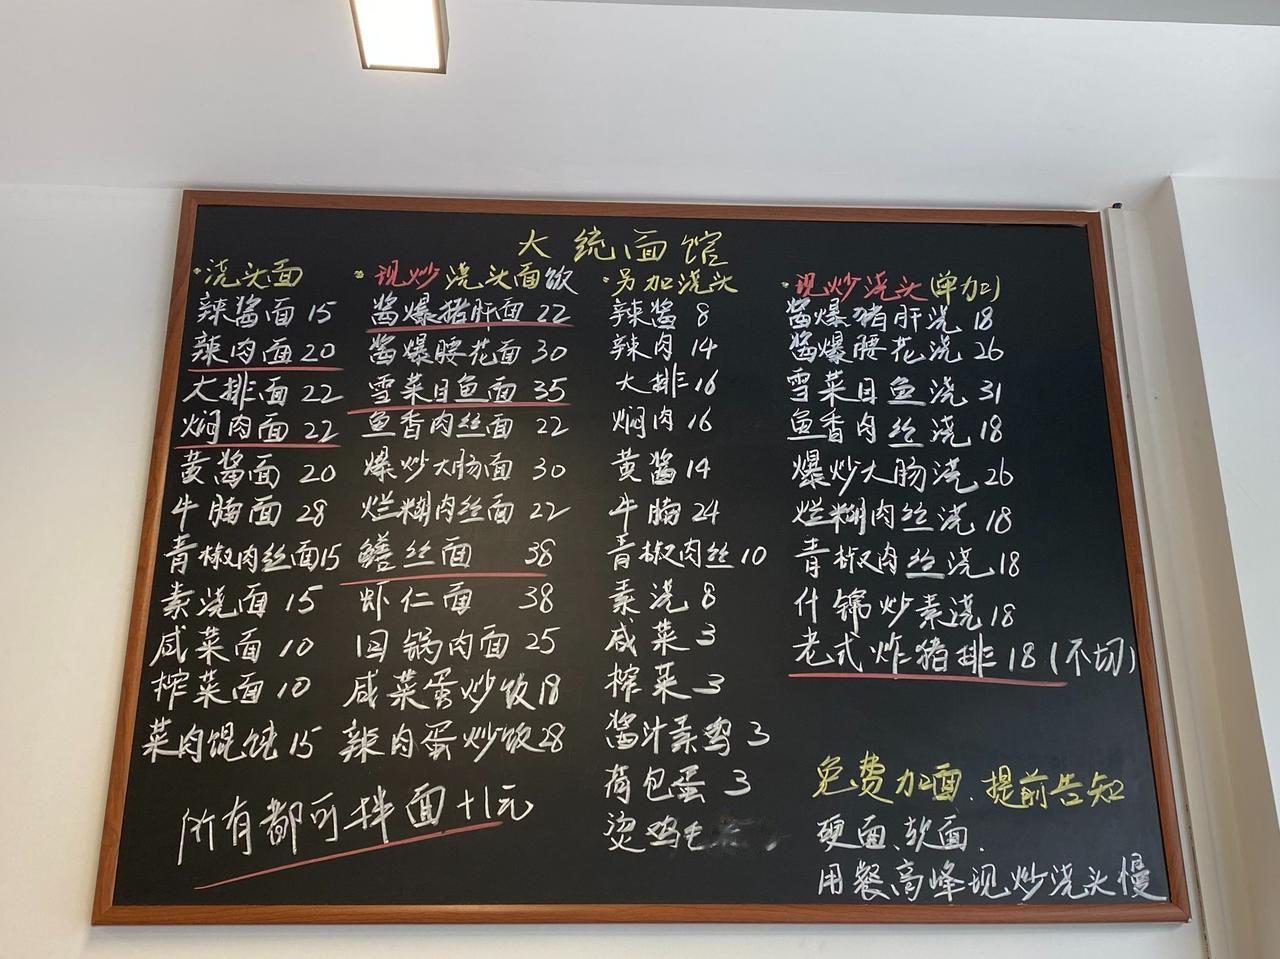 大统面馆
·浇头面
辣酱面 15
辣肉面 20
大排面 22
焖肉面 22
黄酱面 20
牛腩面 28
青椒肉丝面 15
素浇面 15
咸菜面 10
榨菜面 10
菜肉馄饨 15
所有都可拌面+1元
现炒浇头面饭
酱爆猪肝面 22
酱爆腰花面 30
雪菜目鱼面 35
鱼香肉丝面 22
爆炒大肠面 30
烂糊肉丝面 22
鳝丝面 38
虾仁面 38
回锅肉面 25
咸菜蛋炒饭 18
辣肉蛋炒饭 28
·另加浇头
辣酱 8
辣肉 14
大排 16
焖肉 16
黄酱 14
牛腩 24
青椒肉丝 10
素浇 8
咸菜 3
榨菜 3
酱汁素鸡 3
荷包蛋 3
烫鸡毛
·现炒浇头(单加)
酱爆猪肝浇 18
酱爆腰花浇 26
雪菜目鱼浇 31
鱼香肉丝浇 18
爆炒大肠浇 26
烂糊肉丝浇 18
青椒肉丝浇 18
什锦炒素浇 18
老式炸猪排 18 (不切)
免费加面、提前告知
硬面、软面.
用餐高峰现炒浇头慢